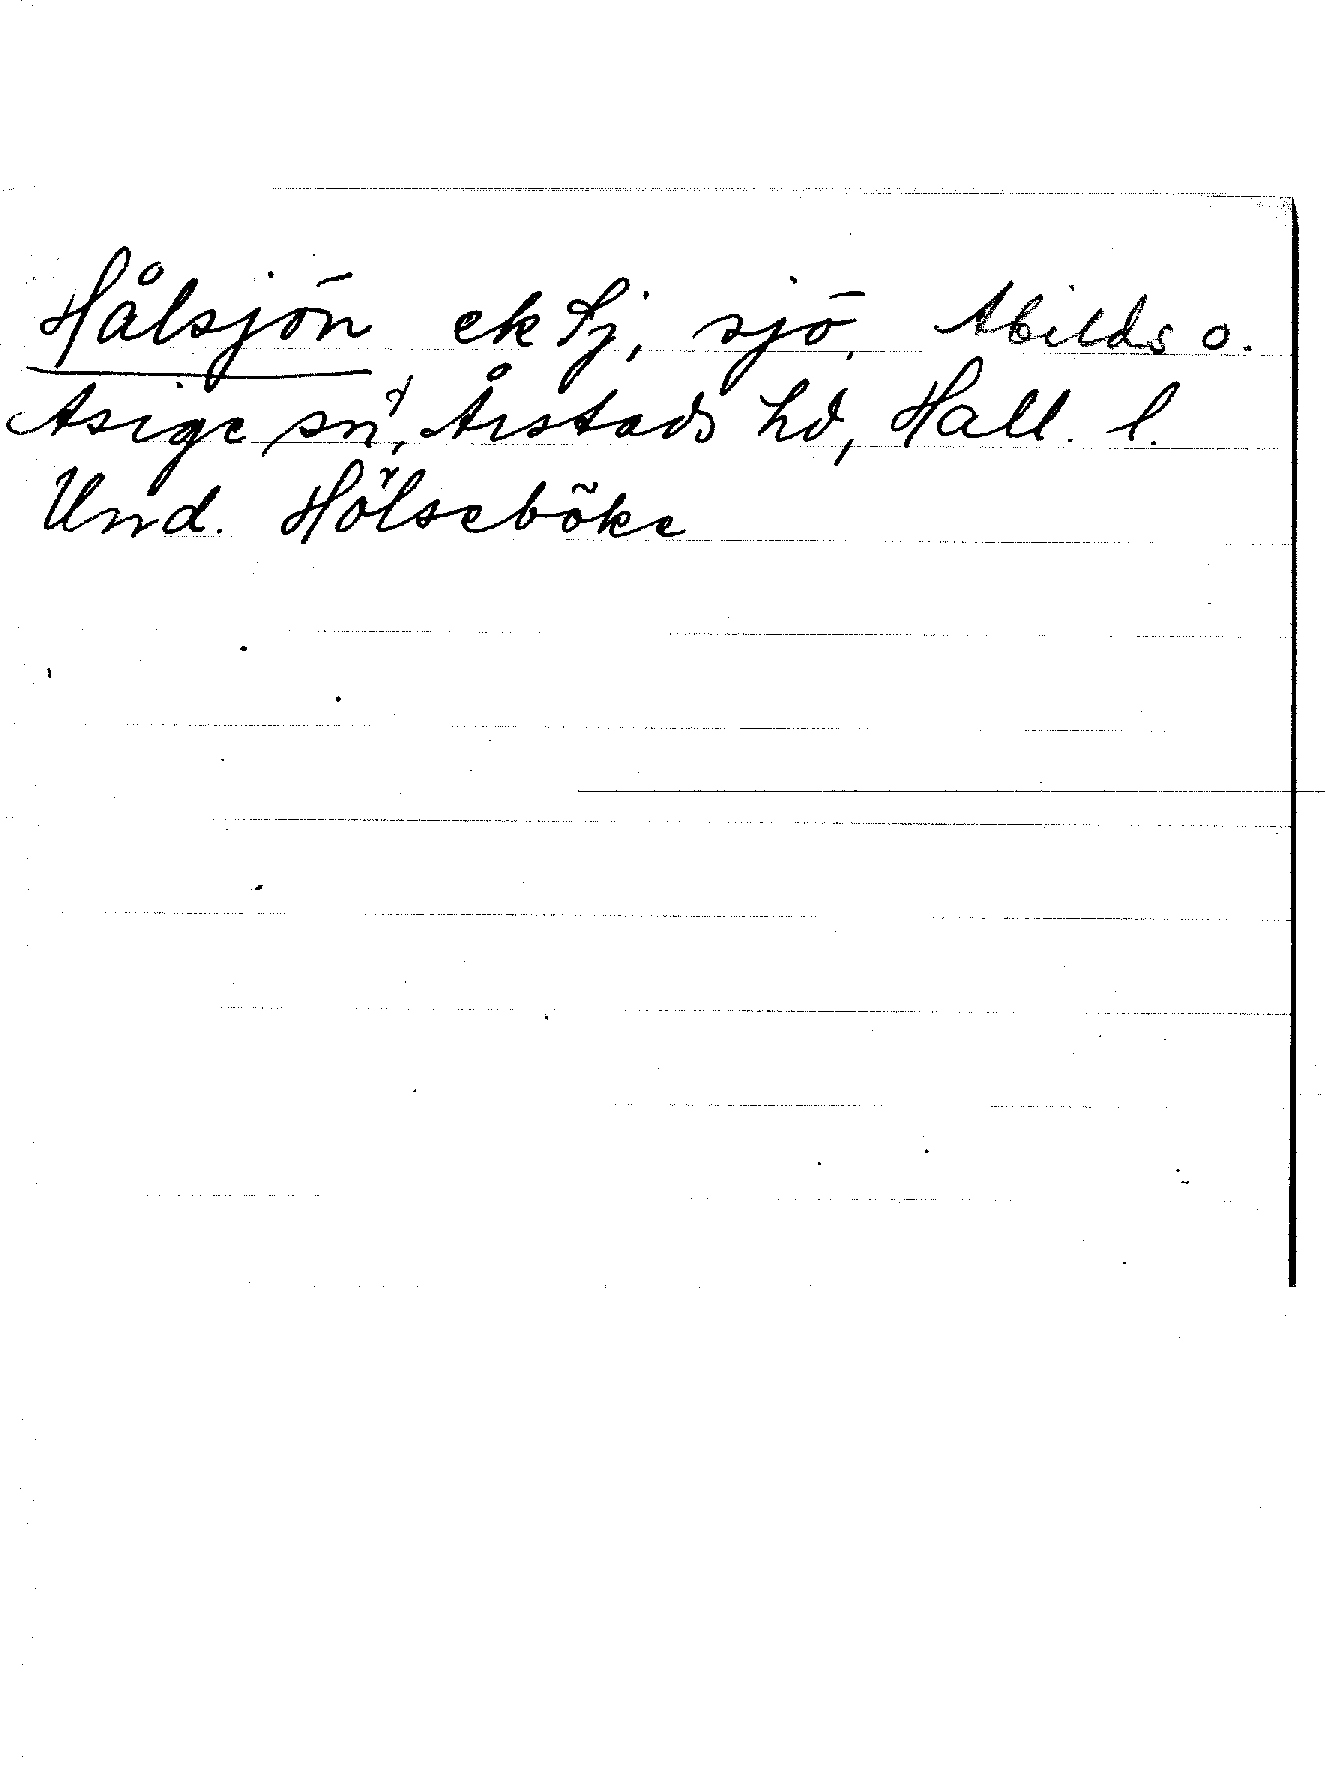 Hålsjön ek Sj, sjö, Abilds o.
Asige snr, Årstads hd, Hall. l.
Und. Hölseböke